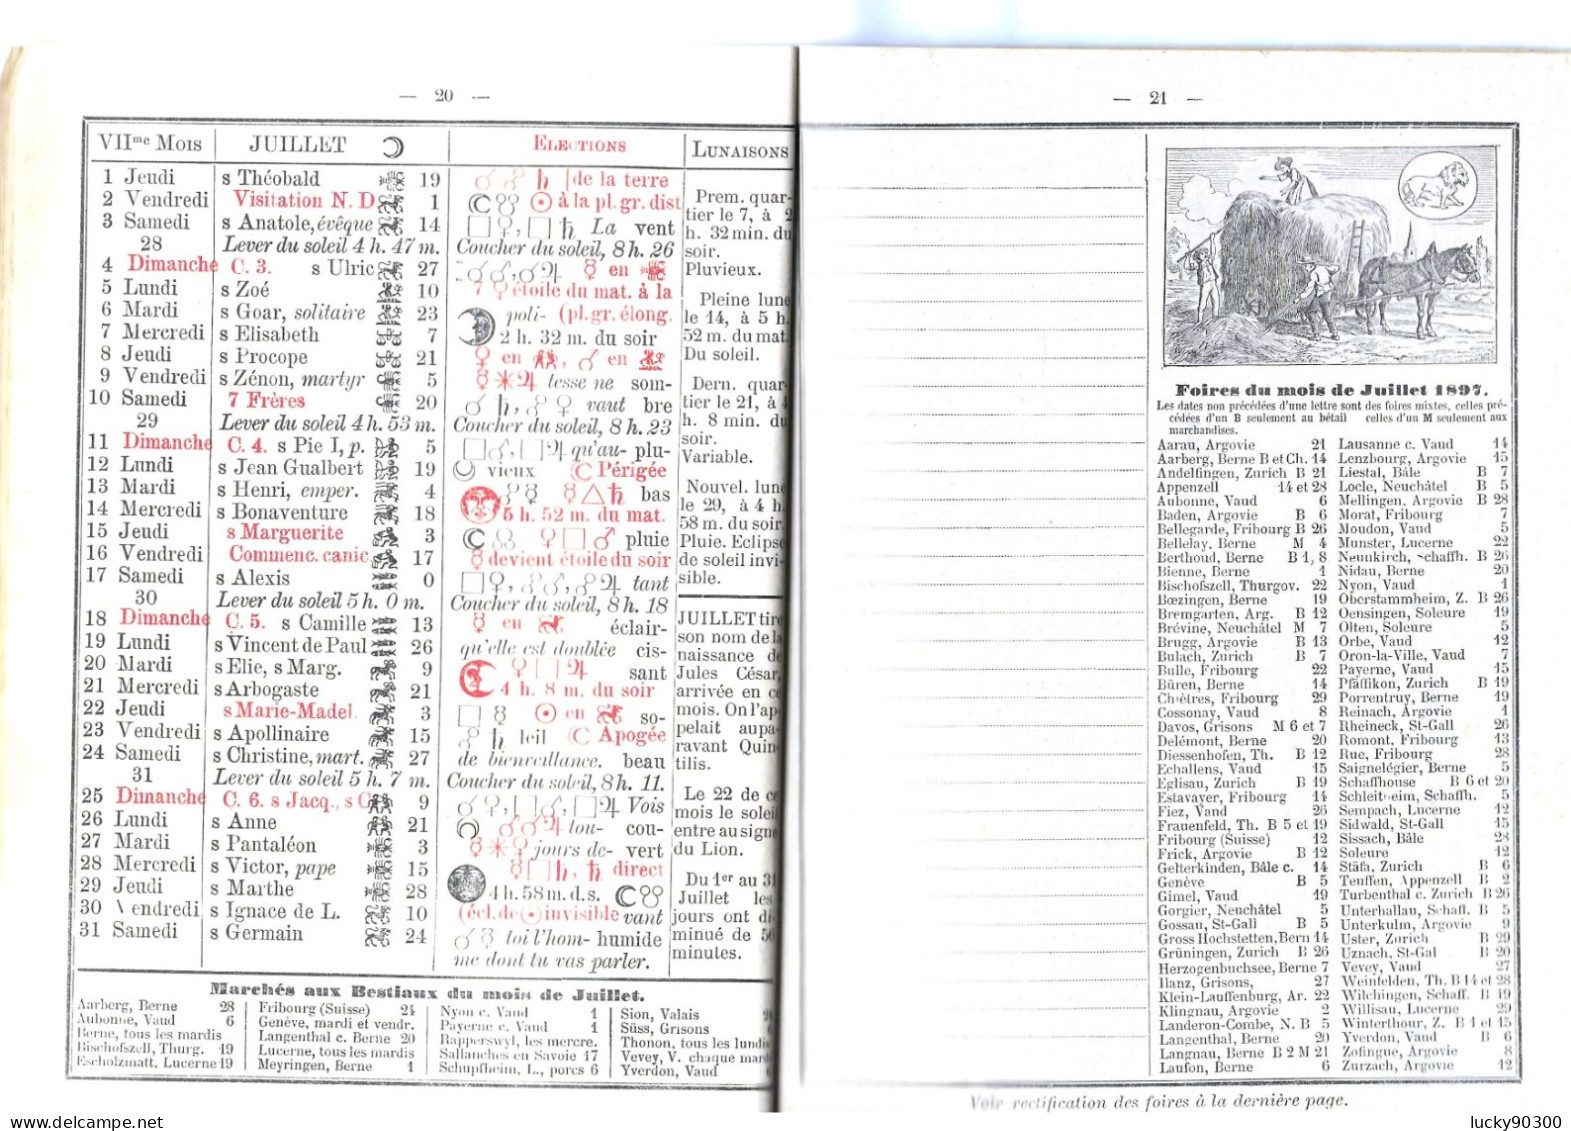 — 20 —
VIIme Mois JUILLET Elections Lunaisons
1 Jeudi s Théobald 19 de la terre
2 Vendredi Visitation N. D 1 à la pl. gr. dist
3 Samedi s Anatole, évêque 14 La vent
28 Lever du soleil 4 h. 47 m. Coucher du soleil, 8 h. 26
4 Dimanche C. 3. s Ulric 27 en
5 Lundi s Zoé 10 étoile du mat. à la
6 Mardi s Goar, solitaire 23 poli- (pl. gr. élong.
7 Mercredi s Elisabeth 7 2 h. 32 m. du soir
8 Jeudi s Procope 21 en , en
9 Vendredi s Zénon, martyr 5 tesse ne som-
10 Samedi 7 Frères 20 vaut bre
29 Lever du soleil 4 h. 53 m. Coucher du soleil, 8 h. 23
11 Dimanche C. 4. s Pie I, p. 5 qu'au- plu-
12 Lundi s Jean Gualbert 19 vieux Périgée
13 Mardi s Henri, emper. 4 bas
14 Mercredi s Bonaventure 18 5 h. 52 m. du mat.
15 Jeudi s Marguerite 3 pluie
16 Vendredi Commenc. canic 17 devient étoile du soir
17 Samedi s Alexis 0 tant
30 Lever du soleil 5 h. 0 m. Coucher du soleil, 8 h. 18
18 Dimanche C. 5. s Camille 13 en éclair-
19 Lundi s Vincent de Paul 26 qu'elle est doublée cis-
20 Mardi s Elie, s Marg. 9 sant
21 Mercredi s Arbogaste 21 4 h. 8 m. du soir
22 Jeudi s Marie-Madel. 3 en so-
23 Vendredi s Apollinaire 15 leil Apogée
24 Samedi s Christine, mart. 27 de bienveillance. beau
31 Lever du soleil 5 h. 7 m. Coucher du soleil, 8 h. 11.
25 Dimanche C. 6. s Jacq., s C 9 Vois
26 Lundi s Anne 21 tou- cou-
27 Mardi s Pantaléon 3 jours de- vert
28 Mercredi s Victor, pape 15 direct
29 Jeudi s Marthe 28 4 h. 58 m. d. s.
30 Vendredi s Ignace de L. 10 (écl. de invisible vant
31 Samedi s Germain 24 toi l'hom- humide
me dont tu vas parler.
Prem. quar-
tier le 7, à 2
h. 32 min. du
soir.
Pluvieux.
Pleine lune
le 14, à 5 h.
52 m. du mat.
Du soleil.
Dern. quar-
tier le 21, à 4
h. 8 min. du
soir.
Variable.
Nouvel. lune
le 29, à 4 h.
58 m. du soir.
Pluie. Eclipse
de soleil invi-
sible.
JUILLET tire
son nom de la
naissance de
Jules César,
arrivée en ce
mois. On l'ap-
pelait aupa-
ravant Quin-
tilis.
Le 22 de ce
mois le soleil
entre au signe
du Lion.
Du 1er au 31
Juillet les
jours ont di-
minué de 56
minutes.
Marchés aux Bestiaux du mois de Juillet.
Aarberg, Berne 28
Aubonne, Vaud 6
Berne, tous les mardis
Bischofszell, Thurg. 19
Escholzmatt, Lucerne 19
Fribourg (Suisse) 24
Genève, mardi et vendr.
Langenthal c. Berne 20
Lucerne, tous les mardis
Meyringen, Berne 1
Nyon c. Vaud 1
Payerne c. Vaud 1
Rapperswyl, les mercre.
Sallanches en Savoie 17
Schupfheim, L., porcs 6
Sion, Valais
Süss, Grisons
Thonon, tous les lundis
Vevey, V. chaque mardi
Yverdon, Vaud
— 21 —
Foires du mois de Juillet 1897.
Les dates non précédées d'une lettre sont des foires mixtes, celles pré-
cédées d'un B seulement au bétail celles d'un M seulement aux
marchandises.
Aarau, Argovie 21
Aarberg, Berne B et Ch. 14
Andelfingen, Zurich B 21
Appenzell 14 et 28
Aubonne, Vaud 6
Baden, Argovie B 6
Bellegarde, Fribourg B 26
Bellelay, Berne M 4
Berthoud, Berne B 1, 8
Bienne, Berne 1
Bischofszell, Thurgov. 22
Bœzingen, Berne 19
Bremgarten, Arg. B 12
Brévine, Neuchâtel M 7
Brugg, Argovie B 13
Bulach, Zurich B 7
Bulle, Fribourg 22
Büren, Berne 14
Chiètres, Fribourg 29
Cossonay, Vaud 8
Davos, Grisons M 6 et 7
Delémont, Berne 20
Diessenhofen, Th. B 12
Echallens, Vaud 15
Eglisau, Zurich B 19
Estavayer, Fribourg 14
Fiez, Vand 26
Frauenfeld, Th. B 5 et 19
Fribourg (Suisse) 12
Frick, Argovie B 12
Gelterkinden, Bâle c. 14
Genève B 5
Gimel, Vaud 19
Gorgier, Neuchâtel 5
Gossau, St-Gall B 5
Gross Hochstetten, Bern 14
Grüningen, Zurich B 26
Herzogenbuchsee, Berne 7
Ilanz, Grisons, 27
Klein-Lauffenburg, Ar. 22
Klingnau, Argovie 2
Landeron-Combe, N. B 5
Langenthal, Berne 20
Langnau, Berne B 2 M 21
Laufon, Berne 6
Lausanne c. Vaud 14
Lenzbourg, Argovie 15
Liestal, Bâle B 7
Locle, Neuchâtel B 5
Mellingen, Argovie B 28
Morat, Fribourg 7
Moudon, Vaud 5
Munster, Lucerne 22
Neunkirch, Schaffh. B 26
Nidau, Berne 20
Nyon, Vaud 1
Oberstammheim, Z. B 26
Oensingen, Soleure 19
Olten, Soleure 5
Orbe, Vaud 12
Oron-la-Ville, Vaud 7
Payerne, Vaud 15
Pfäffikon, Zurich B 19
Porrentruy, Berne 19
Reinach, Argovie 1
Rheineck, St-Gall 26
Romont, Fribourg 13
Rue, Fribourg 28
Saignelégier, Berne 5
Schaffhouse B 6 et 20
Schleitheim, Schaffh. 5
Sempach, Lucerne 12
Sidwald, St-Gall 15
Sissach, Bâle 28
Soleure 12
Stäfa, Zurich B 6
Teuffen, Appenzell B 2
Turbenthal c. Zurich B 26
Unterhallau, Schaff. B 5
Unterkulm, Argovie 9
Uster, Zurich B 29
Uznach, St-Gal B 20
Vevey, Vaud 27
Weinfelden, Th. B 14 et 28
Wilchingen, Schaff. B 19
Willisau, Lucerne 29
Winterthour, Z. B 1 et 15
Yverdon, Vaud B 6
Zofingue, Argovie 8
Zurzach, Argovie 12
Voir rectification des foires à la dernière page.
www.delcampe.net
lucky90300